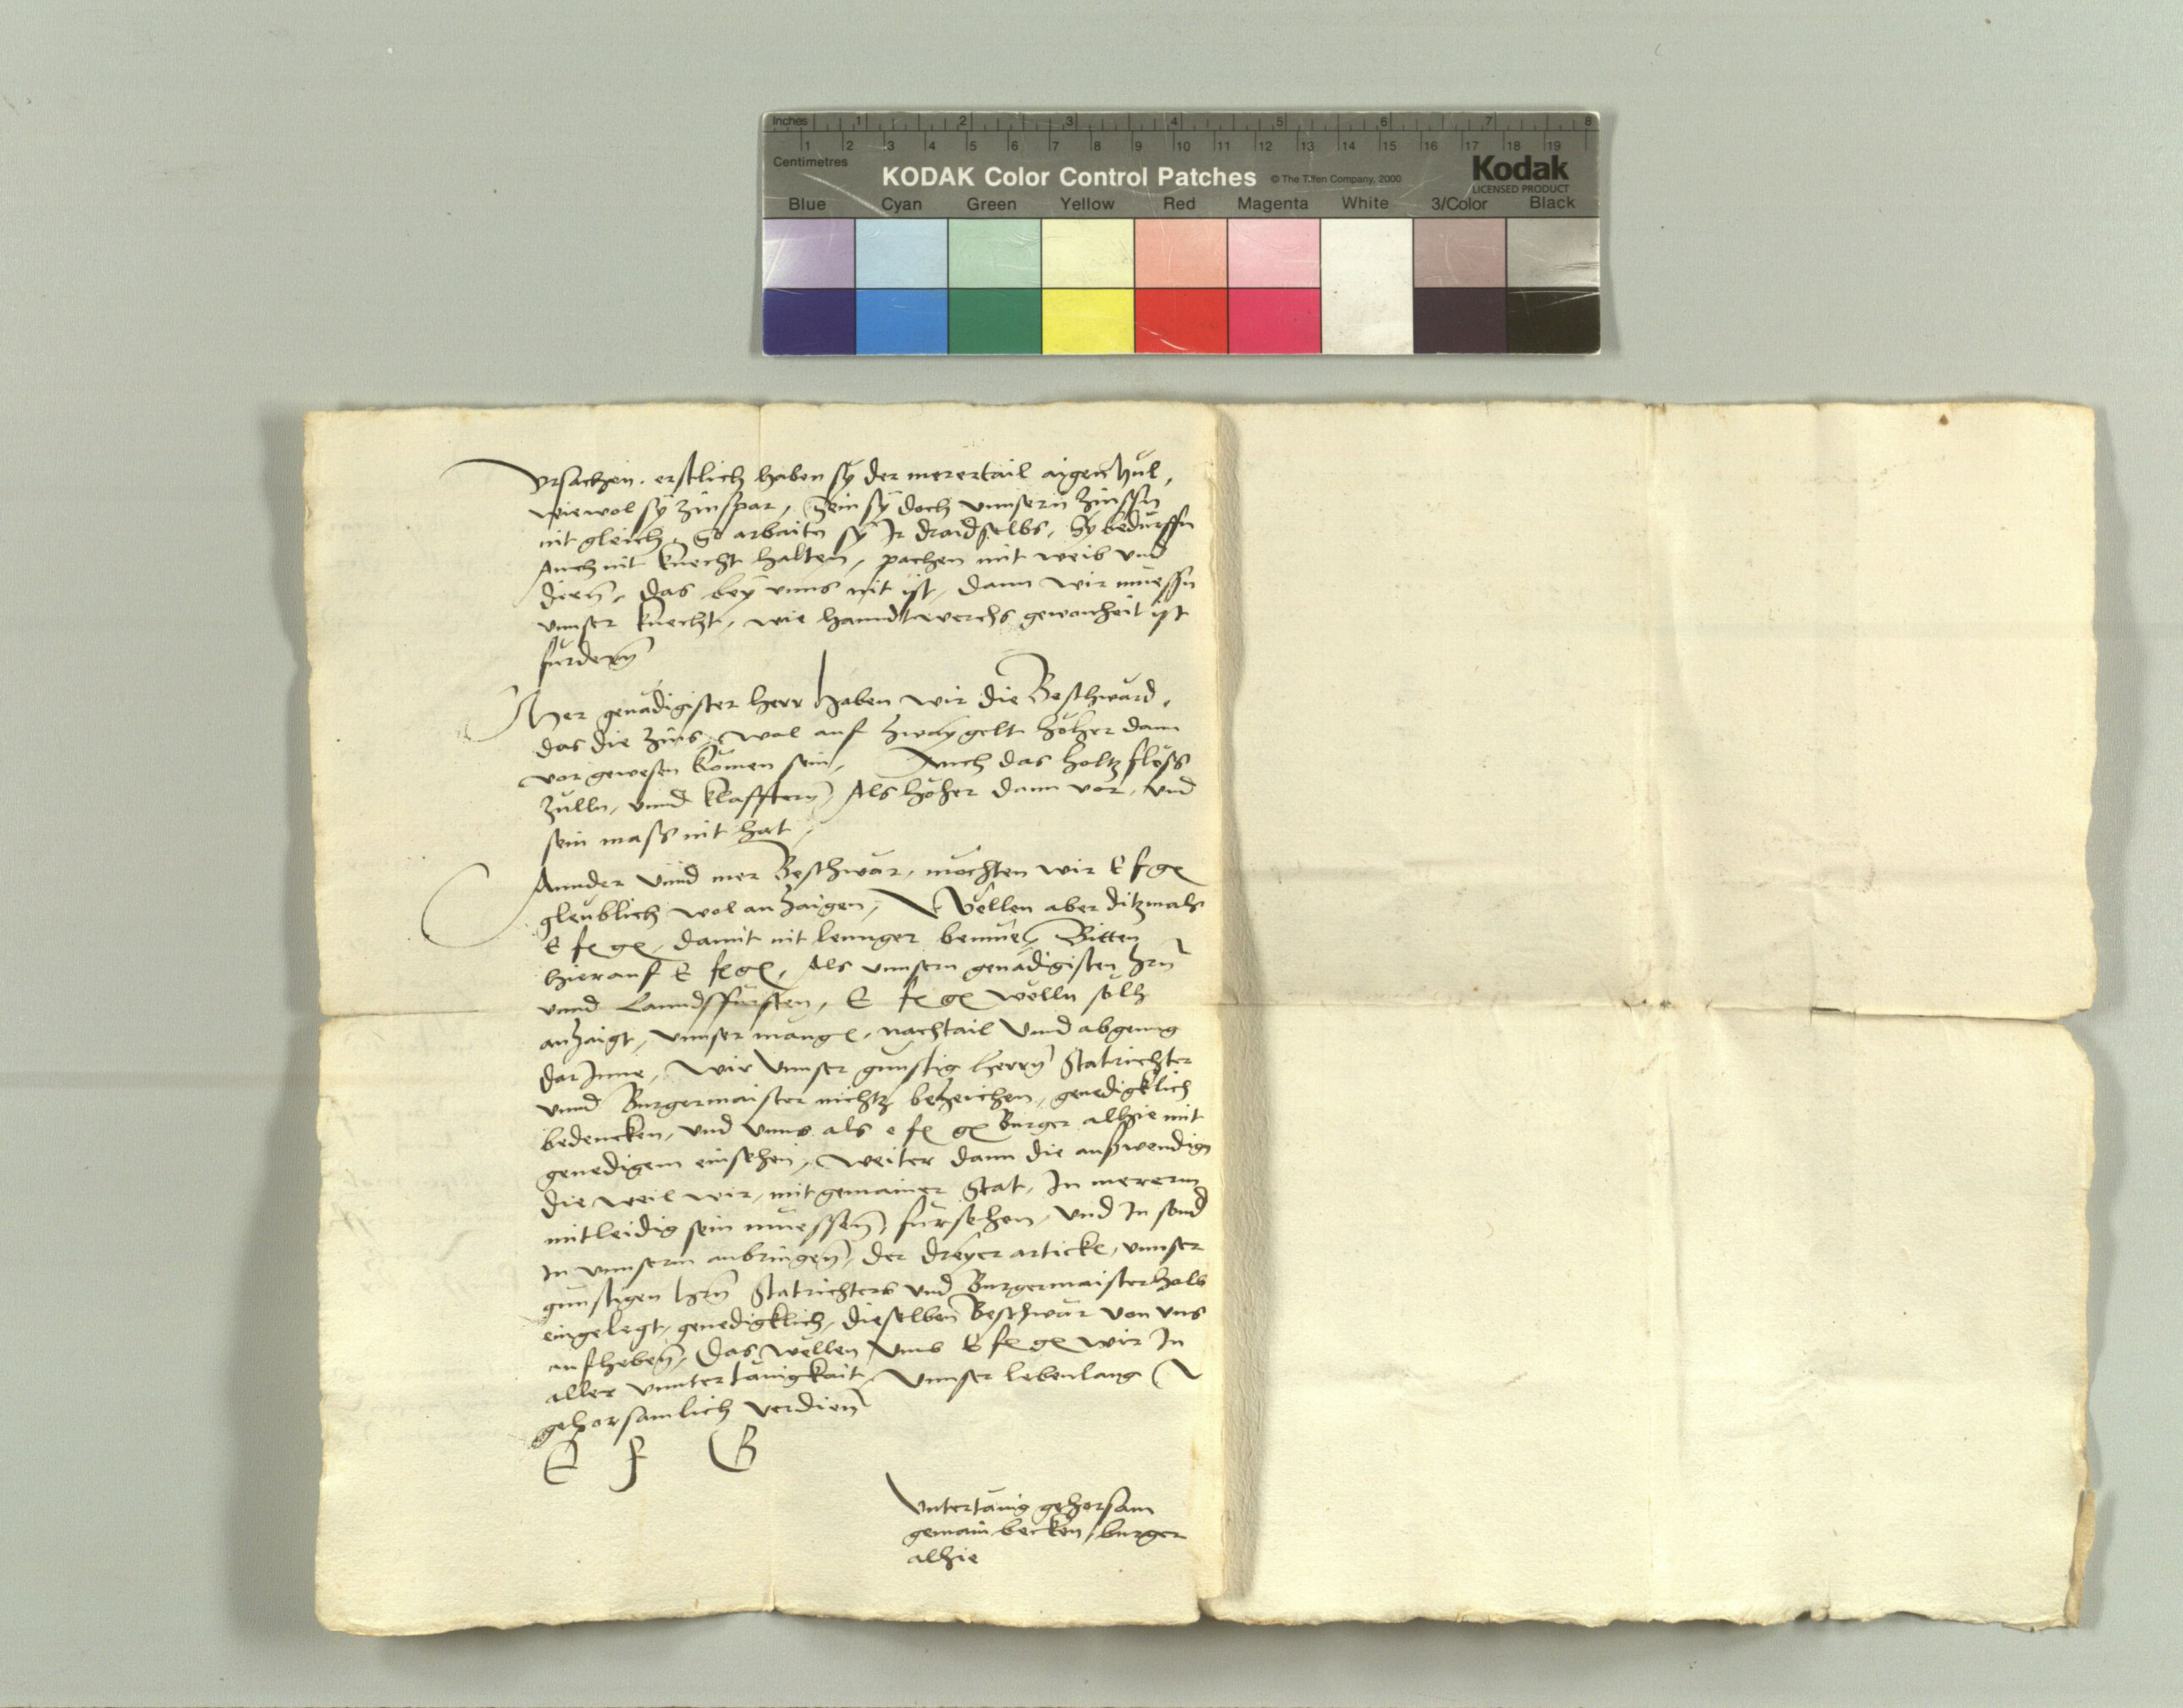 Inches 1 2 3 4 5 6 7 8
1 2 3 4 5 6 7 8 9 10 11 12 13 14 15 16 17 18 19
Centimetres
KODAK Color Control Patches © The Tiffen Company, 2000 Kodak
LICENSED PRODUCT
Blue Cyan Green Yellow Red Magenta White 3/Color Black
vrsachen. erstlich haben sy der merertail aigen Mül,
wiewol sy zinspar, sein sy doch vnnsern zinssn
nit gleich, So arbaitn sy Ir draid selbs, Sy bedurffn
Auch nit knecht halten, pachen mit weib vnd
diern, das bey vnns nit ist, dann wir muessn
vnnser knecht, wie hanndtwerchs gewonheit ist
furdern
Mer genädigister herr haben wir die Beschward,
das die Zins, wol auf zway gelt höher dann
vor gewesen komen sein, Auch das holtz flöss
Zulln, vnnd klafftern, Als höher dann vor, vnd
sein mass nit hat,
Annder vnnd mer Beschwär, mochten wir E f g
gleublich wol anzaigen, Wellen aber ditzmals
E f g, damit nit lennger bemuen, Bitten
hierauf E f g, Als vnnsern genädigisten hrn
vnnd Lanndsfürsten, E f g wölln solh
anzaigt, vnnser mangl, nachtail vnnd abgenng
dar Inne, wir vnnser gunstig herrn Statrichter
vnnd Burgermaister nichtz bezeichen, genedigklich
bedencken, vnd vnns als e f g Burger alhie mit
genedigem einsehen, weiter dann die außwendign
die weil wir, mit gemainer Stat, In mererm
mitleidig sein muessen, fursehen, vnd In sond
In vnnserm anbringen, der dreyer artickl, vnnser
gunstigen hrn Statrichters vnd Burgermaister halb
eingelegt, genedigklich, dieselben Beschwär von vns
aufheben, Das wellen vmb E f g wir In
aller vnntertänigkait, vnnser lebenlang
gehorsamlich verdien
E F G
Vntertänig gehorsam
gemain becken, burger
alhie